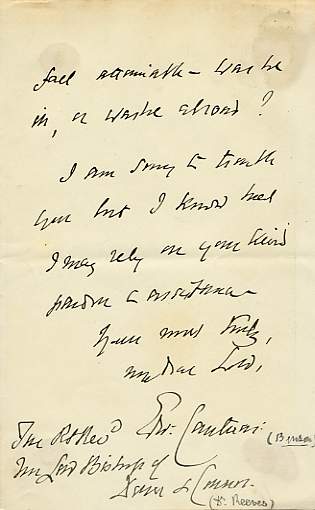 fact attainable – was he
in, or was he abroad?
I am sorry to trouble
you but I know that
I may rely on your kind
pardon & assistance –
Yours most truly,
my dear Lord,
Edw. Cantuar: (Benson)
The Rt Revd
The Lord Bishop of
Down & Connor.
(Dr. Reeves)